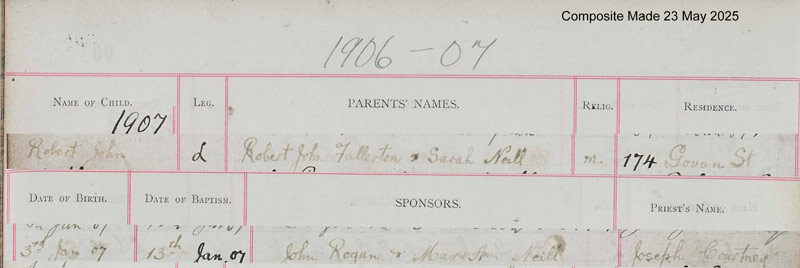 Composite Made 23 May 2025
1906 - 07
NAME OF CHILD. LEG. PARENTS' NAMES. RELIG. RESIDENCE.
1907
Robert John L Robert John Fullerton & Sarah Neill m. 174 Govan St
DATE OF BIRTH. DATE OF BAPTISM. SPONSORS. PRIEST'S NAME.
Jan 07
3rd Jan 07 13th Jan 07 John Rogan & Mary Ann Neill Joseph Courtney